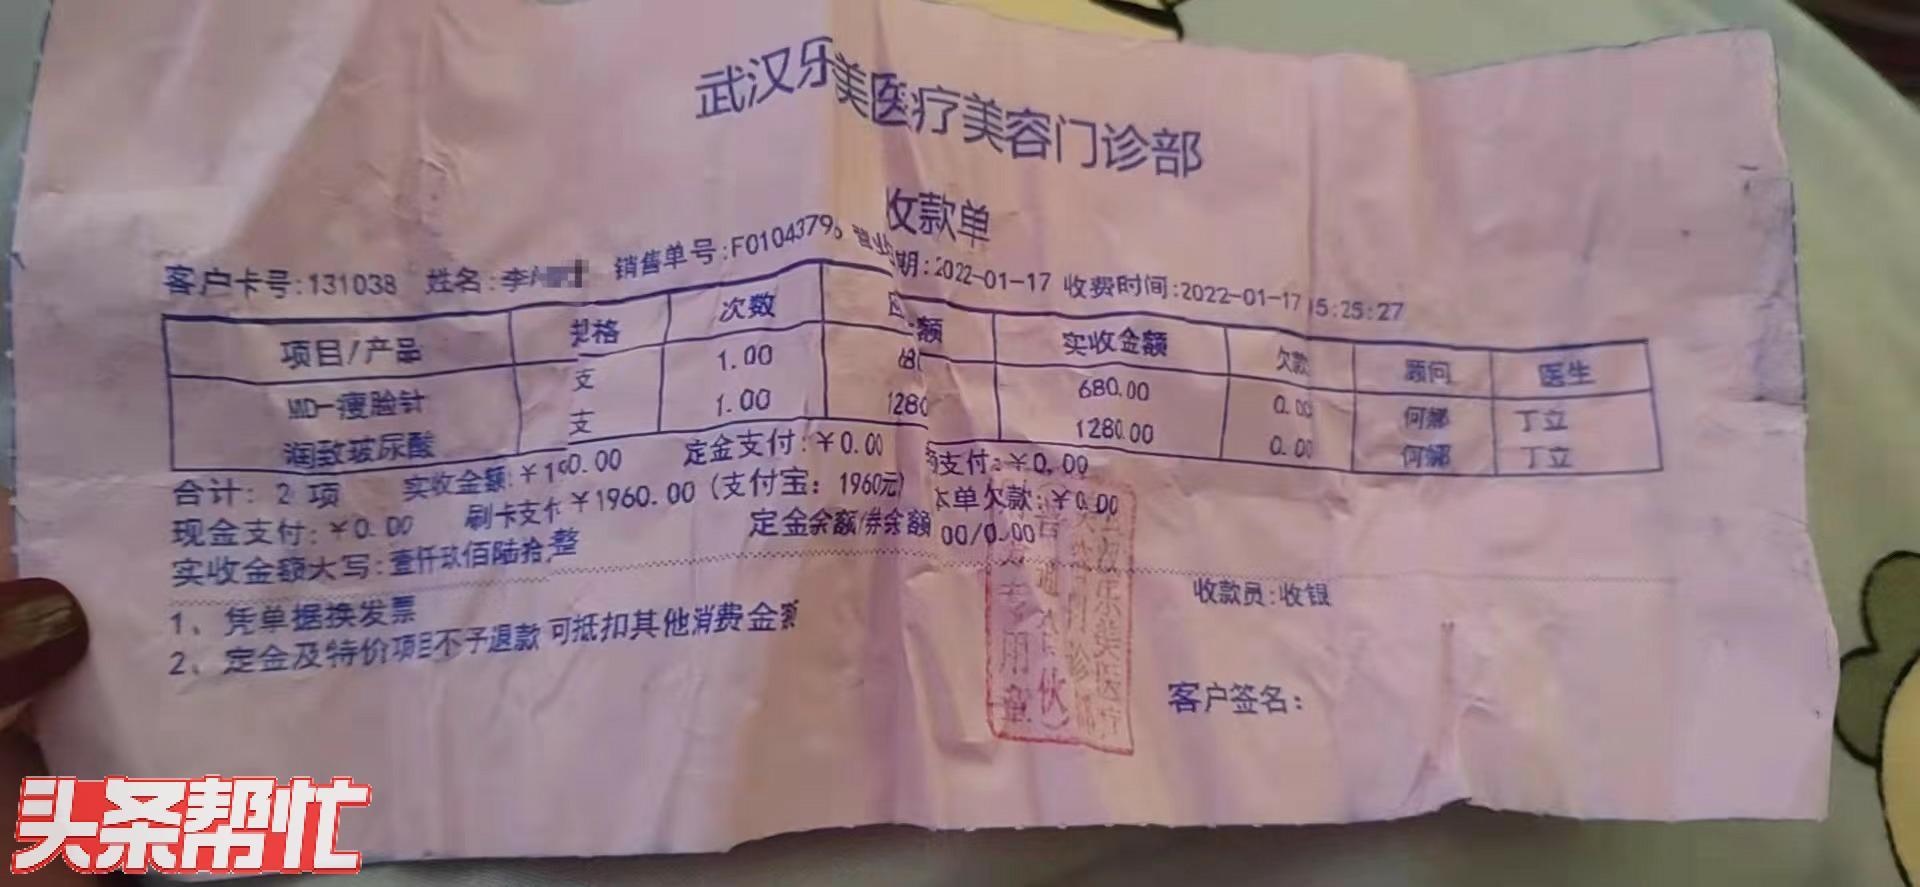 武汉乐美医疗美容门诊部
收款单
客户卡号:131038 姓名:李 销售单号:F0104379 营业日期:2022-01-17 收费时间:2022-01-17 15:25:27
项目/产品 规格 次数 额 实收金额 欠款 顾问 医生
MD-瘦脸针 支 1.00 680 680.00 0.00 何娜 丁立
润致玻尿酸 支 1.00 1280 1280.00 0.00 何娜 丁立
合计: 2 项 实收金额:¥1 0.00 定金支付:¥0.00 支付:¥0.00
现金支付:¥0.00 刷卡支付¥1960.00(支付宝: 1960元) 本单欠款:¥0.00
实收金额大写:壹仟玖佰陆拾 整 定金余额/券余额 00/0.00
1、凭单据换发票
2、定金及特价项目不予退款 可抵扣其他消费金额
收款员:收银
客户签名:
头条帮忙